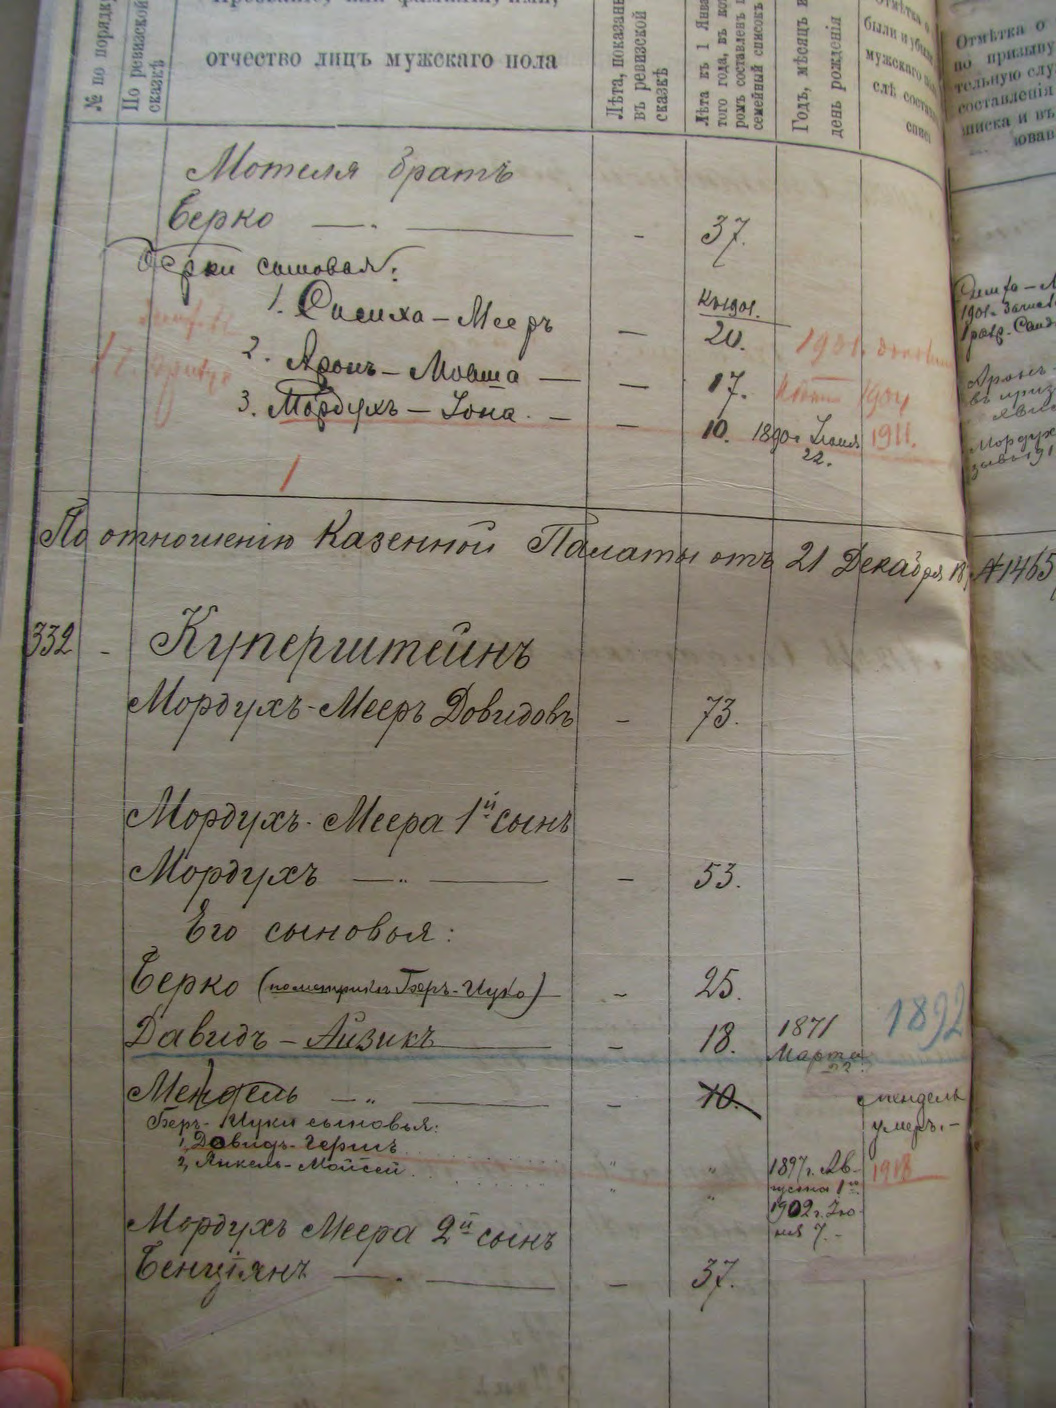 № по порядку
По ревизской сказкѣ
Прозваніе, или фамилія, имя,
отчество лицъ мужскаго пола
Лѣта, показанн
въ ревизской
сказкѣ
Лѣта къ 1 Янва
того года, въ ко
ромъ составленъ
семейный списокъ
Годъ, мѣсяцъ и
день рожденія
Отмѣтка о
были и убы
мужскаго по
слѣ состав
Отмѣтка о
по призыву
тельную слу
составленія
писка и въ
зован
Мотеля братъ
Берко — „ — - 37.
Берки сыновья:
1. Сисиха-Мееръ — 20.
къ 1901.
2. Аронъ-Мовша — — 17. 1904
3. Мордухъ-Iона. — — 10. 1890 г Iюня 22. 1911.
1
По отношенію Казенной Палаты отъ 21 Декабря №1465
332 - Куперштейнъ
Мордухъ-Мееръ Довидовъ - 73.
Мордухъ-Меера 1й сынъ
Мордухъ — „ — - 53.
Его сыновья:
Берко (по метрикѣ Беръ-Ицко) - 25.
Давидъ-Айзикъ - 18. 1871 Марта 22. 1892
Мендель — „ — - 10. Мендель умеръ.-
Беръ-Ицки сыновья:
1, Довидъ-Гершъ „ „ 1897 г. Августа 1го. 1918
2, Янкель-Мойсей „ „ 1902 г. Iюня 7.-
Мордухъ Меера 2й сынъ
Бенціянъ — „ — - 37.